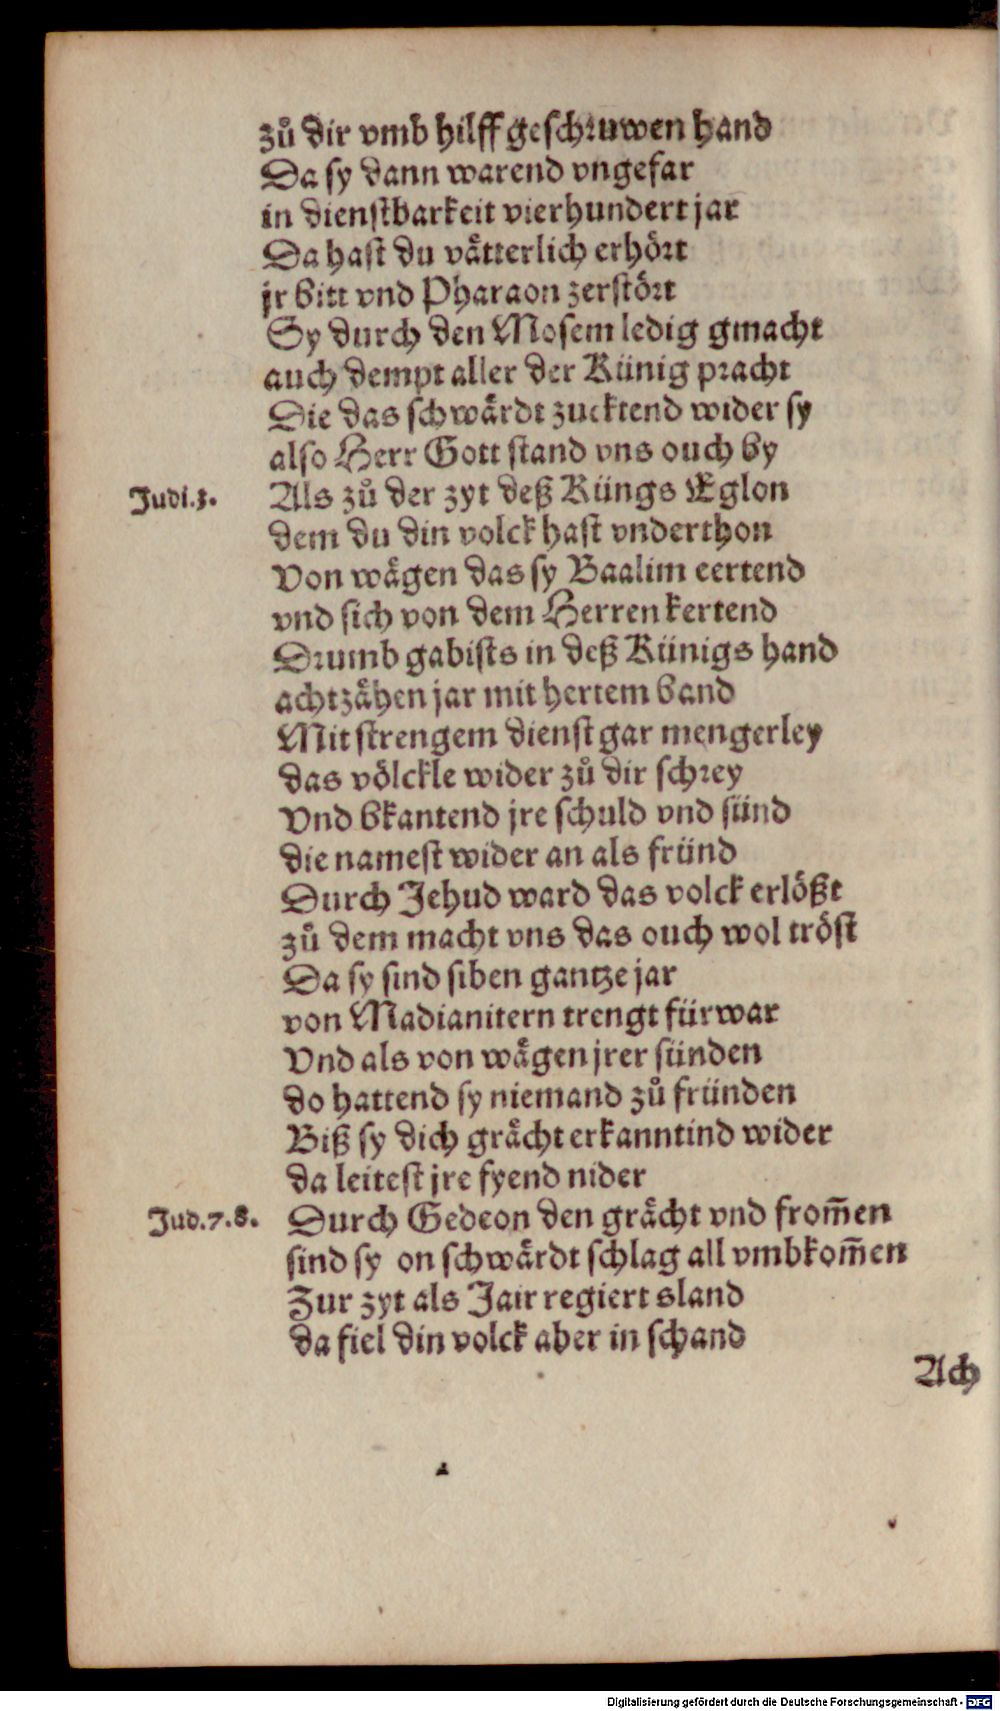 zů dir vmb hilff geschruwen hand
Da sy dann warend vngefar
in dienstbarkeit vierhundert jar
Da hast du vätterlich erhört
jr bitt vnd Pharaon zerstört
Sy durch den Mosem ledig gmacht
auch dempt aller der Künig pracht
Die das schwärdt zucktend wider sy
also Herr Gott stand vns ouch by
Judi.3. Als zů der zyt deß Küngs Eglon
dem du din volck hast vnderthon
Von wägen das sy Baalim eertend
vnd sich von dem Herren kertend
Drumb gabists in deß Künigs hand
achtzähen jar mit hertem band
Mit strengem dienst gar mengerley
das völckle wider zů dir schrey
Vnd bkantend jre schuld vnd sünd
die namest wider an als fründ
Durch Jehud ward das volck erlößt
zů dem macht vns das ouch wol tröst
Da sy sind siben gantze jar
von Madianitern trengt fürwar
Vnd als von wägen jrer sünden
do hattend sy niemand zů fründen
Biß sy dich grächt erkanntind wider
da leitest jre fyend nider
Jud.7.8. Durch Gedeon den grächt vnd from̄en
sind sy on schwärdt schlag all vmbkom̄en
Zur zyt als Jair regiert sland
da fiel din volck aber in schand
Ach
Digitalisierung gefördert durch die Deutsche Forschungsgemeinschaft - DFG